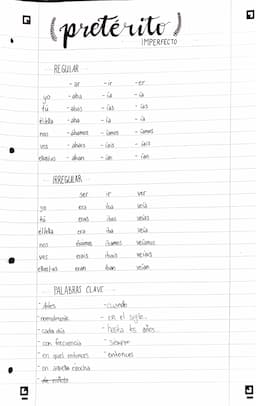 pretérito
IMPERFECTO
REGULAR
-ar -ir -er
yo -aba -ía -ía
tú -abas -ías -ías
él/ella -aba -ía -ía
nos -ábamos -íamos -íamos
vos -abais -íais -íais
ellas/os -aban -ían -ían
IRREGULAR
ser ir ver
yo era iba veía
tú eras ibas veías
él/ella era iba veía
nos éramos íbamos veíamos
vos erais ibais veíais
ellas/os eran iban veían
PALABRAS CLAVE
-antes -cuando
-normalmente -en el siglo...
-cada día -hasta los años...
-con frecuencia -siempre
-en aquel entonces -entonces
-en aquella época
-de niño/a